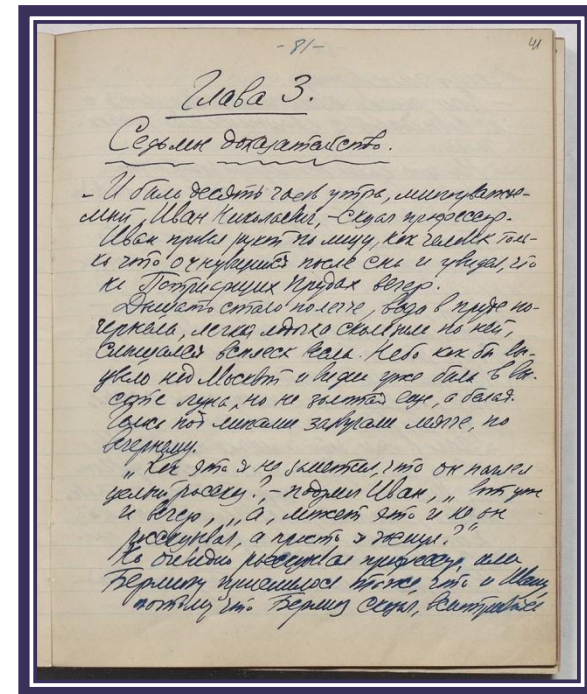 -81-
41
Глава 3.
Седьмое доказательство.
- И было десять часов утра, многоуважае-
мый, Иван Николаевич, - сказал профессор.
Иван провел рукой по лицу, как человек толь-
ко что очнувшийся после сна и увидел, что
на Патриарших Прудах вечер.
Дышать стало полегче, вода в пруде по-
чернела, легкая лодочка скользила по ней,
слышался всплеск весла. Небо как бы вы-
цвело над Москвой и видна уже была в вы-
соте луна, но не золотая еще, а белая.
Голоса под липами звучали мягче, по
вечернему.
„Как это я не заметил, что он наплел
целый рассказ?, - подумал Иван, „ вот уж
и вечер, „А, может это и не он
рассказывал, а просто я заснул?"
Но очевидно рассказывал профессор, или
Берлиозу приснилось то же, что и Ивану
потому что Берлиоз сказал, всматриваясь